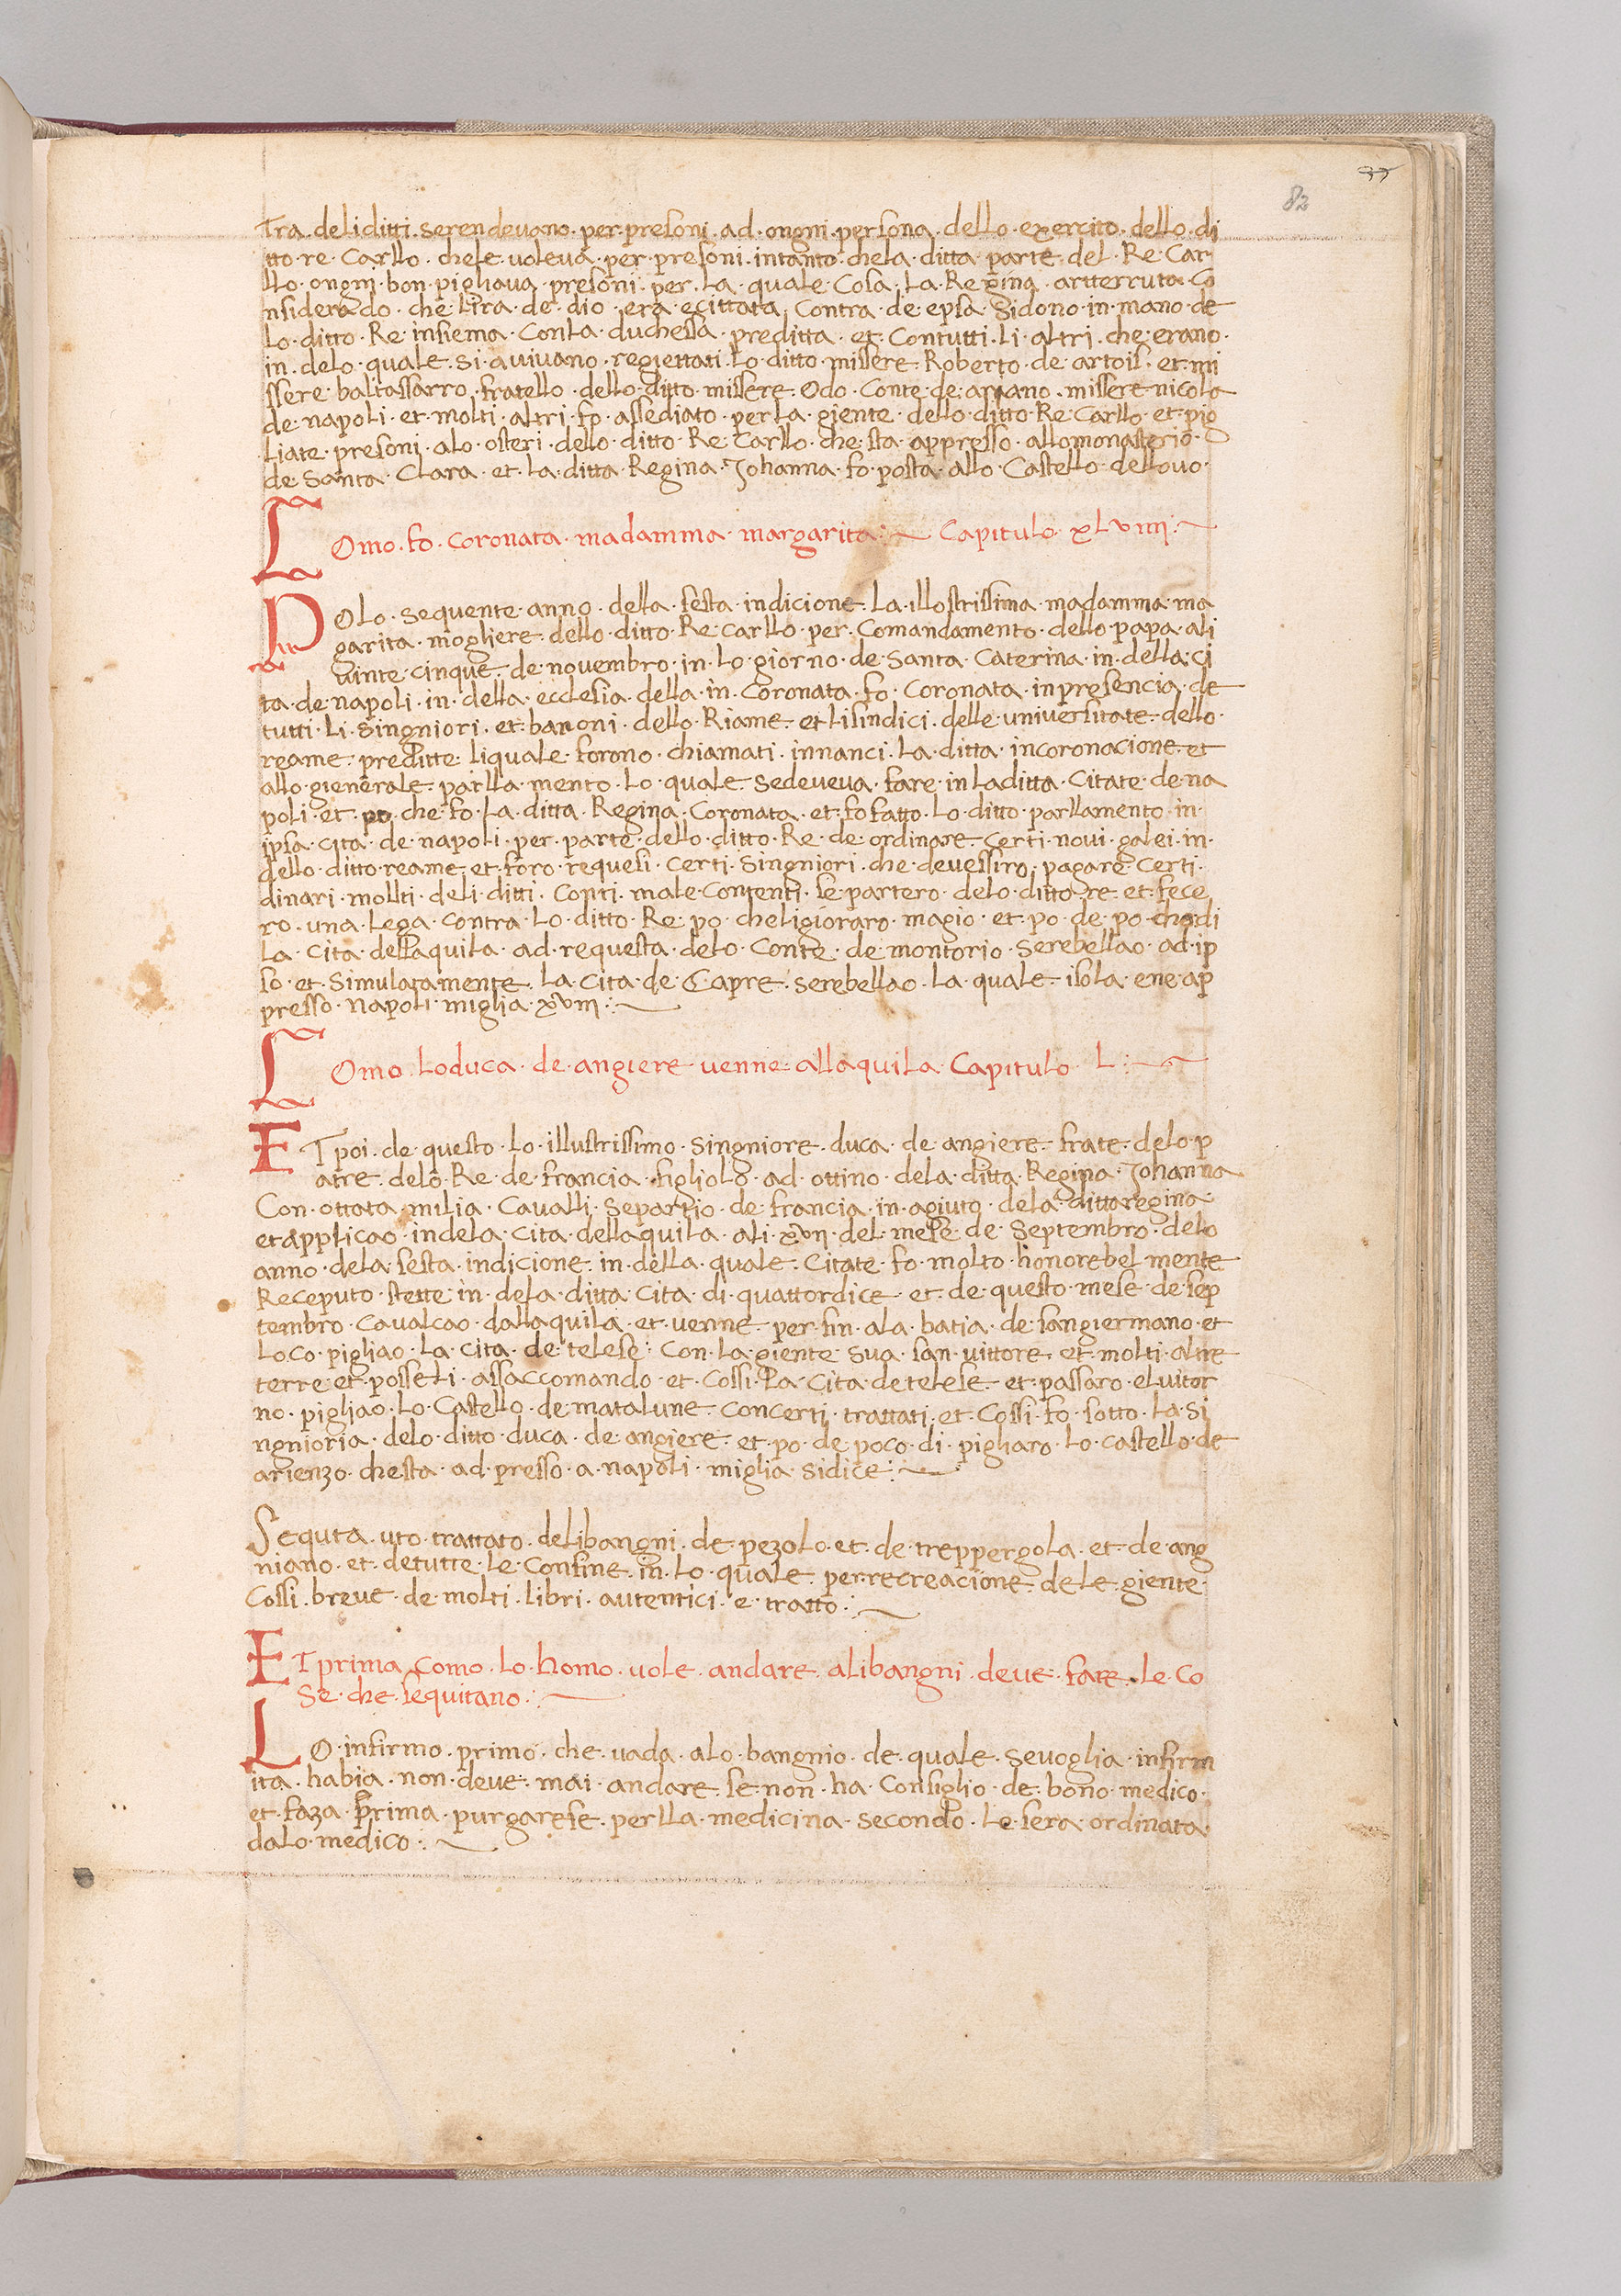 82
77
Tra·deliditti·serendevano·per·presoni·ad·ongni·persona·dello·exercito·dello·di
tto·re·Carllo·chele·voleva·per·presoni·intanto·chela·ditta·parte·del·Re·Car
llo·ongni·bon·pigliava·presoni·per·la·quale·Cosa·La·Regina·artterruta·Co
nsiderado·che·lira·de·dio·era·ecittata·Contra·de·epsa·Sidono·in·mano·de
lo·ditto·Re·insiema·Conla·duchessa·preditta·et·Contutti·li·altri·che·erano·
in·delo·quale·si·avivano·regiettati·lo·ditto·missere·Roberto·de·artois·et·mi
ssere·baltassarro·fratello·dello·ditto·missere·Odo·Conte·de·ariano·missere·nicola
de·napoli·et·molti·altri·fo·assediato·perla·giente·dello·ditto·Re·Carllo·et·pig
liate·presoni·alo·osteri·dello·ditto·Re·Carllo·che·sta·appresso·allomonasterio·
de·Santa·Clara·et·la·ditta·Regina·Johanna·fo·posta·allo·Castello·dellovo·
COmo·fo·coronata·madamma·margarita:~ Capitulo·xLviiii:~
POlo·sequente·anno·della·sesta·indicione·La·illostrissima·madamma·ma
garita·mogliere·dello·ditto·Re·carllo·per·Comandamento·dello·papa·ali
vinte·cinque·de·novembro·in·lo·giorno·de·Santa·Caterina·in·della·ci
ta·de·napoli·in·della·ecclesia·della·in·coronata·fo·Coronata·inpresencia·de
tutti·li·singniori·et·baroni·dello·Riame·et·lisindici·delle·universitate·dello·
reame·preditte·liquale·forono·chiamati·innanci·la·ditta·incoronacione·et
allo·gienerale·parlla·mento·lo·quale·sedeveva·fare·in·laditta·Citate·de·na
poli·et·po·che·fo·la·ditta·Regina·Coronata·et·fo·fatto·Lo·ditto·parllamento·in·
ipsa·cita·de·napoli·per·parte·dello·ditto·Re·de·ordinare·Certi·novi·galei·in·
dello·ditto·reame·et·foro·requesi·Certi·Singniori·che·devessiro·pagare·Certi·
dinari·mollti·deli·ditti·Conti·male·Contenti·se·partero·delo·ditto·re·et·fece
ro·una·lega·contra·lo·ditto·Re·po·cheligioraro·magio·et·po·de·po·chodi
La·Cita·dellaquila·ad·requesta·delo·Conte·de·montorio·serebellao·ad·ip
so·et·Simulatamente·La·Cita·de·Capre·serebellao·La·quale·isola·ene·ap
presso·napoli·miglia·xviii:~
COmo·loduca·de·angiere·venne·allaquila·Capitulo·L:~
ET poi·de·questo·lo·illustrissimo·Singniore·duca·de·angiere·frate·delo·p
atre·delo·Re·de·francia·figliolo·ad·ottino·dela·ditta·Regina·Johanna
Con·ottata·milia·Cavalli·Separtio·de·francia·in·agiuto·dela·dittaregina·
et·applicao·indela·Cita·dellaquila·ali·xvii·del·mese·de·Septembro·delo
anno·dela·sesta·indicione·in·della·quale·Citate·fo·molto·honorebel·mente
Receputo·stette·in·dela·ditta·Cita·di·quattordice·et·de·questo·mese·de·sep
tembro·Cavalcao·dallaquila·et·venne·per·sin·ala·batia·de·sangiermano·et
Loco·pigliao·La·cita·de·telese·Con·la·giente·sua·san·vittore·et·molti·altre
terre·et·posseli·assaccomando·et·Cossi·La·Cita·detelese·et·passaro·elvitor
no·pigliao·Lo·Castello·de·matalune·Concerti·trattati·et·Cossi·fo·sotto·la·si
ngnioria·delo·ditto·duca·de·angiere·et·po·de·poco·di·pigliaro·lo·castello·de
arienzo·chesta·ad·presso·a·napoli·miglia·sidice:~
Sequta·uto·trattato·delibangni·de·pezolo·et·de·treppergola·et·de·ang
niano·et·detutte·le·confine·in·lo·quale·per·recreacione·dele·giente·
Cossi·breve·de·molti·libri·autentici·e·tratto:~
ET prima·Como·lo·homo·vole·andare·alibangni·deve·fare·le·Co
se·che·sequitano:~
LO·infirmo·primo·che·vada·alo·bangnio·de·quale·sevoglia·infirm
ita·habia·non·deve·mai·andare·se·non·ha·Consiglio·de·bono·medico·
et·faza·prima·purgarese·perlla·medicina·secondo·le·sera·ordinata·
dalo·medico:~